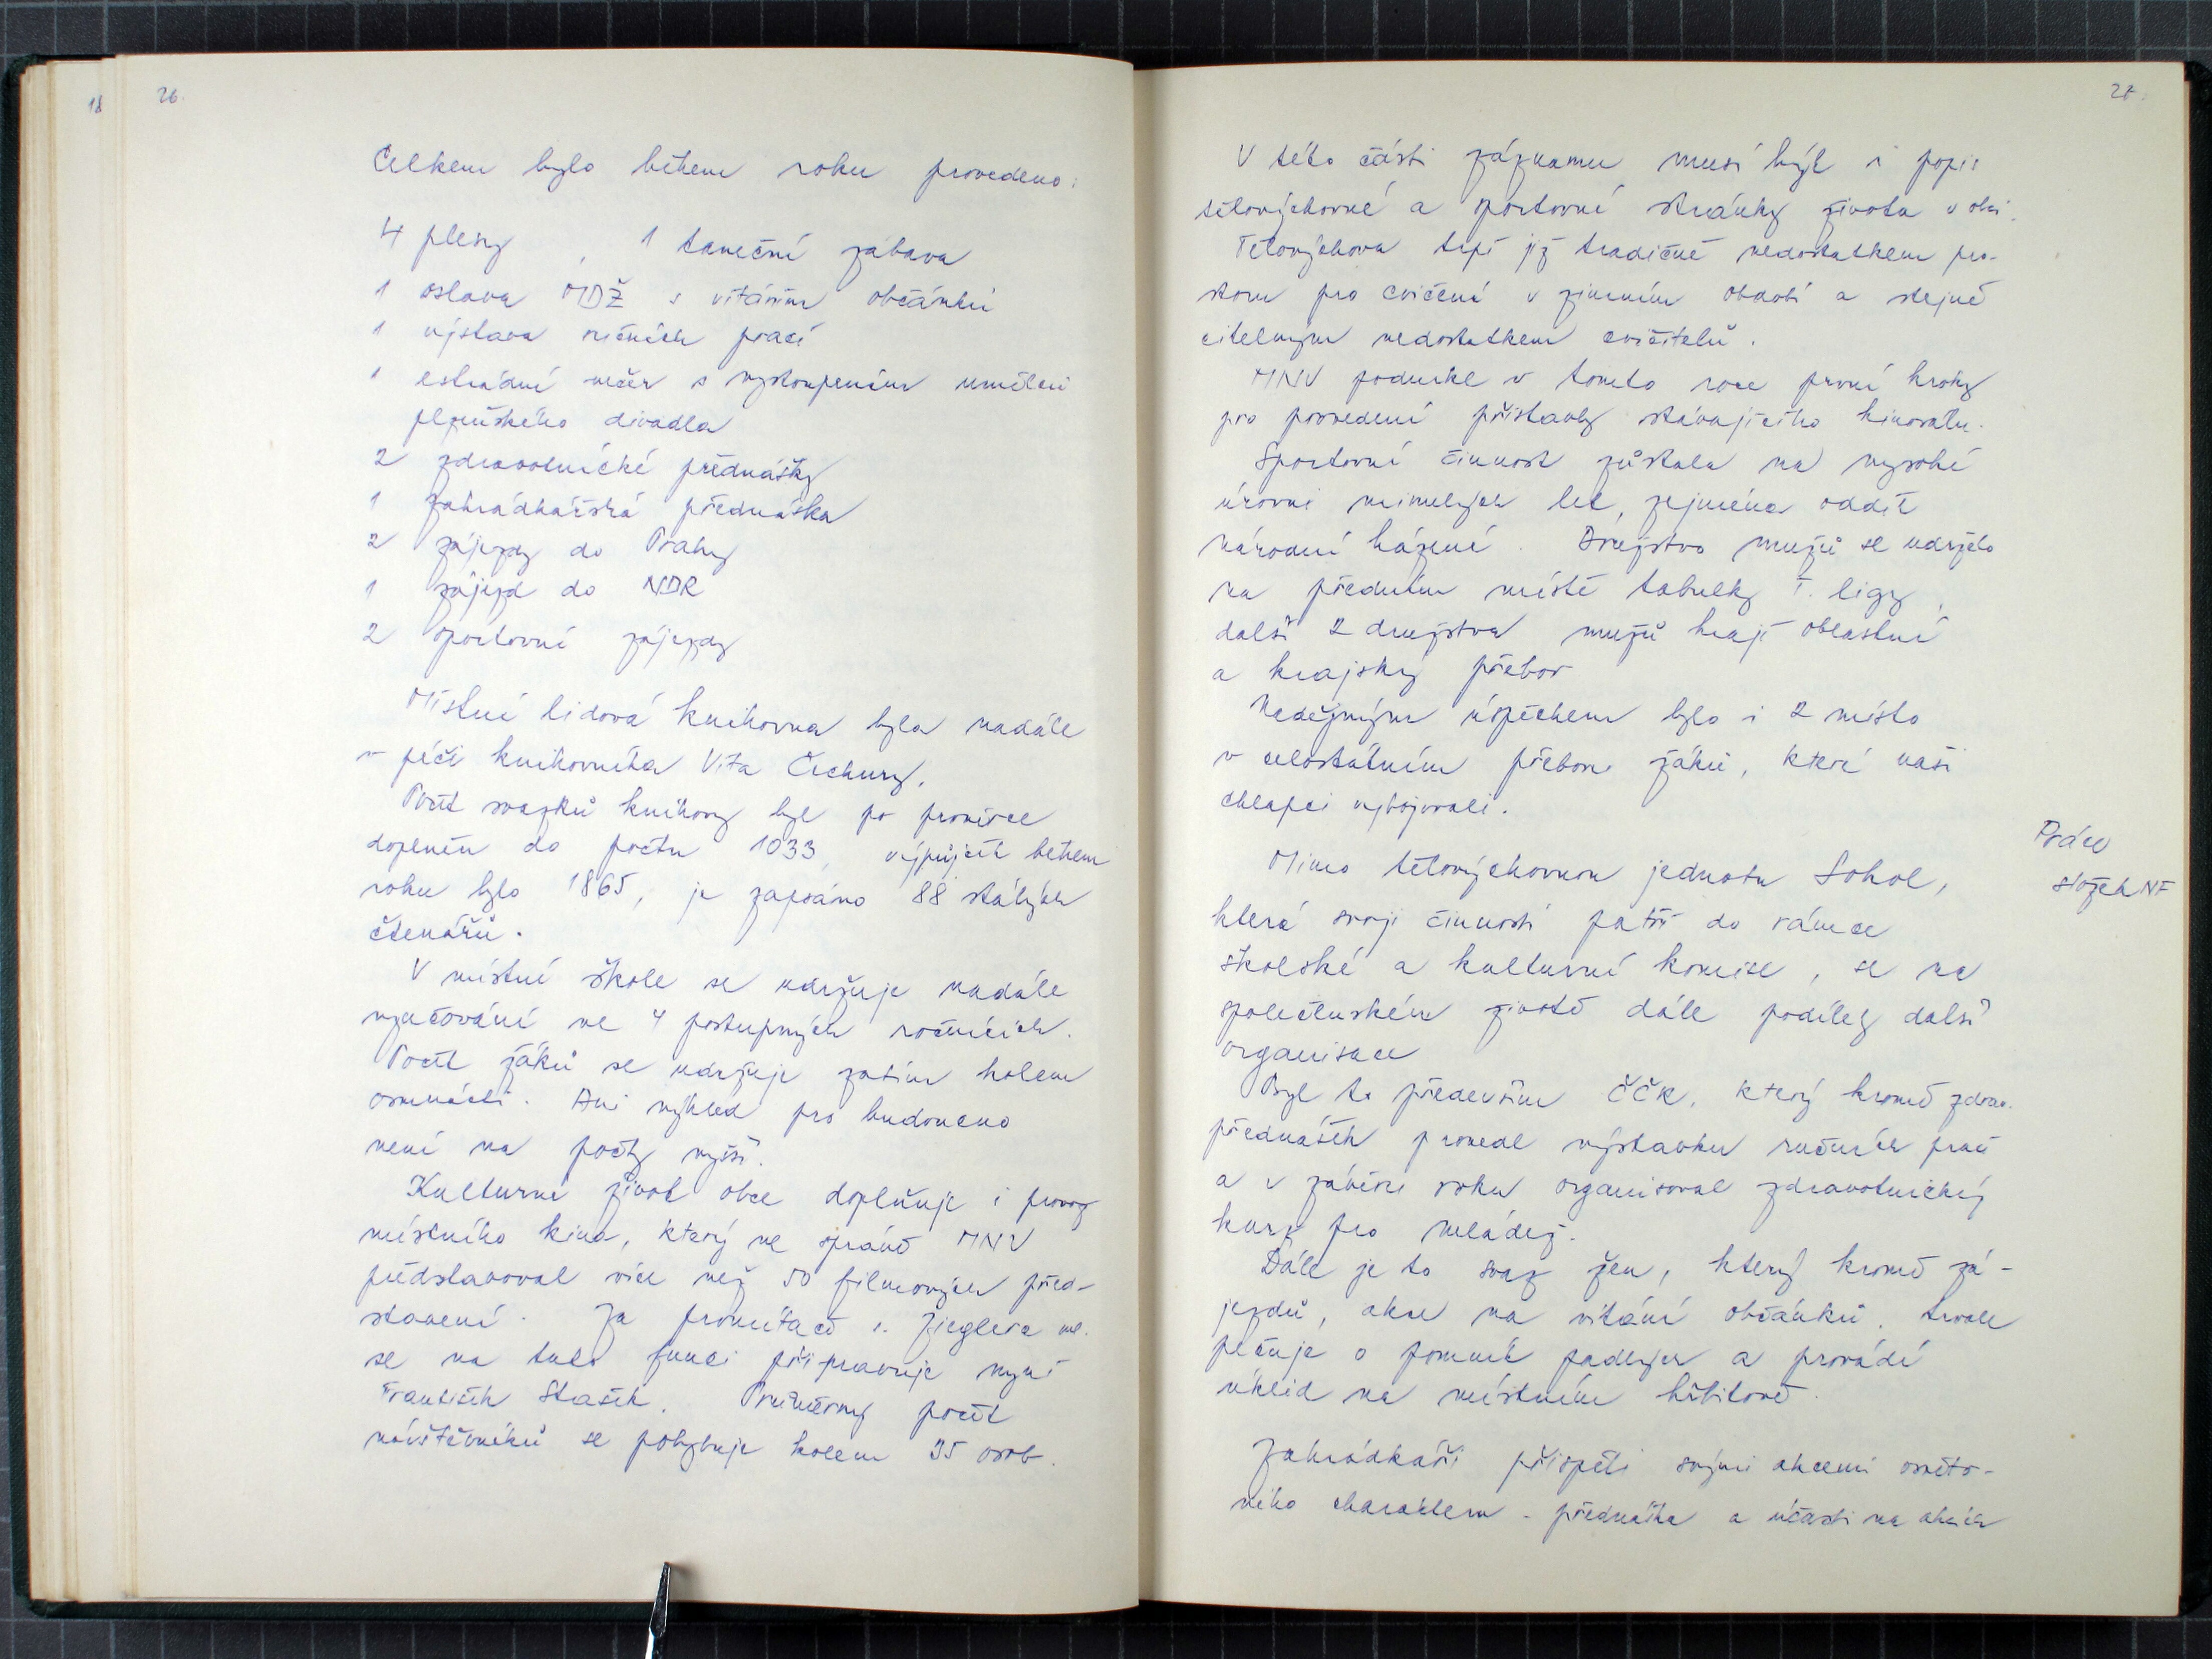 18
26.
Celkem bylo během roku provedeno:
4 plesy, 1 taneční zábava
1 oslava MDŽ s vítáním občánků
1 výstava ručních prací
1 estrádní večer s vystoupením umělců
plzeňského divadla
2 zdravotnické přednášky
1 zahrádkářská přednáška
2 zájezdy do Prahy
1 zájezd do NDR
2 sportovní zájezdy
Místní lidová knihovna byla nadále
v péči knihovníka Víta Čechury.
Počet svazků knihovny byl po prověrce
doplněn do počtu 1033, výpůjček během
roku bylo 1865, je zapsáno 88 stálých
čtenářů.
V místní škole se udržuje nadále
vyučování ve 4 postupných ročnících.
Počet žáků se udržuje zatím kolem
osmnácti. Ani výhled pro budoucno
není na počty vyšší.
Kulturní život obce doplňuje i provoz
místního kina, který ve správě MNV
představoval více než 50 filmových před-
stavení. Za promítače s. Zieglera ml.
se na tuto funci připravuje nyní
František Stašek. Průměrný počet
návštěvníků se pohybuje kolem 35 osob.
27.
V této části záznamu musí být i popis
tělovýchovné a sportovní stránky života v obci.
Tělovýchova trpí již tradičně nedostatkem pro-
stor pro cvičení v zimním období a stejně
citelným nedostatkem cvičitelů.
MNV podnikl v tomto roce první kroky
pro provedení přístavby stávajícího kinosálu.
Sportovní činnost zůstala na vysoké
úrovni minulých let, zejména oddíl
národní házené. Družstvo mužů se udrželo
na předním místě tabulky I. ligy,
další 2 družstva mužů hrají oblastní
a krajský přebor
Nadějným úspěchem bylo i 2 místo
v celostátním přeboru žáků, které naši
chlapci vybojovali.
Práce
složek NF
Mimo tělovýchovnou jednotu Sokol,
která svojí činností patří do rámce
školské a kulturní komise, se na
společenském životě dále podílely další
organisace
Byl to především ČČK, který kromě zdrav.
přednášek provedl výstavku ručních prací
a v závěru roku organisoval zdravotnický
kurz pro mládež.
Dále je to svaz žen, který kromě zá-
jezdů, akce na vítání občánků, trvale
pečuje o pomník padlých a provádí
úklid na místním hřbitově.
Zahrádkáři přispěli svými akcemi osvěto-
vého charakteru - přednáška a účastí na akcích